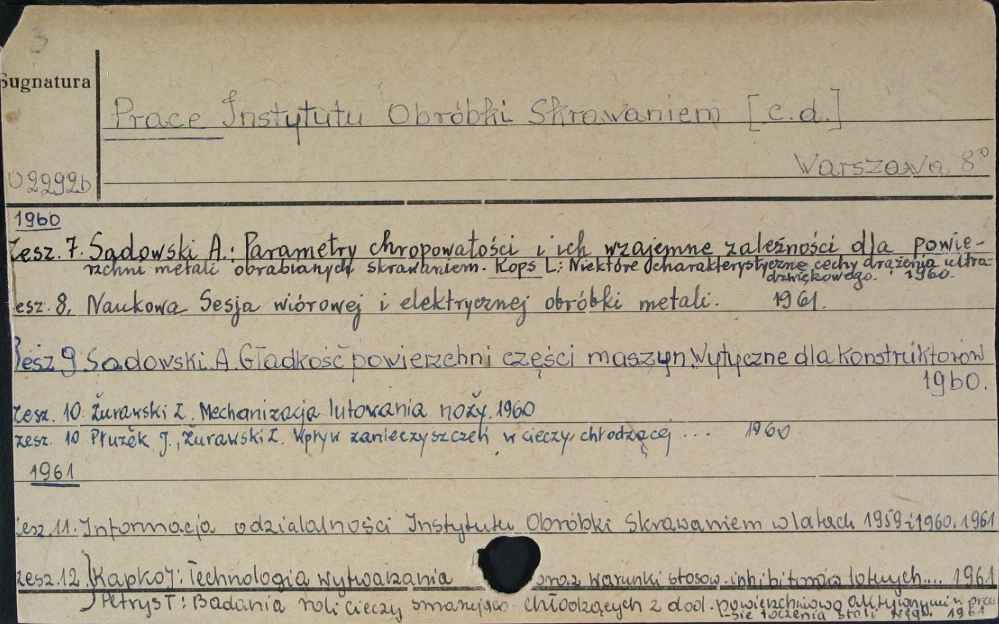 3
Sygnatura
Prace Instytutu Obróbki Skrawaniem [c.d.]
Warszawa 8°
02292b
1960
Zesz. 7. Sadowski A.: Parametry chropowatości i ich wzajemne zależności dla powie-
rzchni metali obrabianych skrawaniem. Kops L: Niektóre charakterystyczne cechy drążenia ultra-
dźwiękowego. 1960.
zesz. 8. Naukowa Sesja wiórowej i elektrycznej obróbki metali. 1961.
Zesz 9 Sadowski. A. Gładkość powierzchni części maszyn. Wytyczne dla konstruktorów
1960.
Zesz. 10. Żurawski Z. Mechanizacja lutowania noży. 1960
zesz. 10 Płużek J., Żurawski Z. Wpływ zanieczyszczeń w cieczy chłodzącej ... 1960
1961
zesz. 11. Informacja o działalności Instytutu Obróbki Skrawaniem w latach 1959 i 1960. 1961
zesz. 12 Kapko J: Technologia wytwarzania oraz warunki stosow. inhibitorów lotnych.... 1961
Petrys T: Badania roli cieczy smarująco - chłodzących z dod. powierzchniowo aktywnymi w proce
-sie toczenia stali węgl. 1961